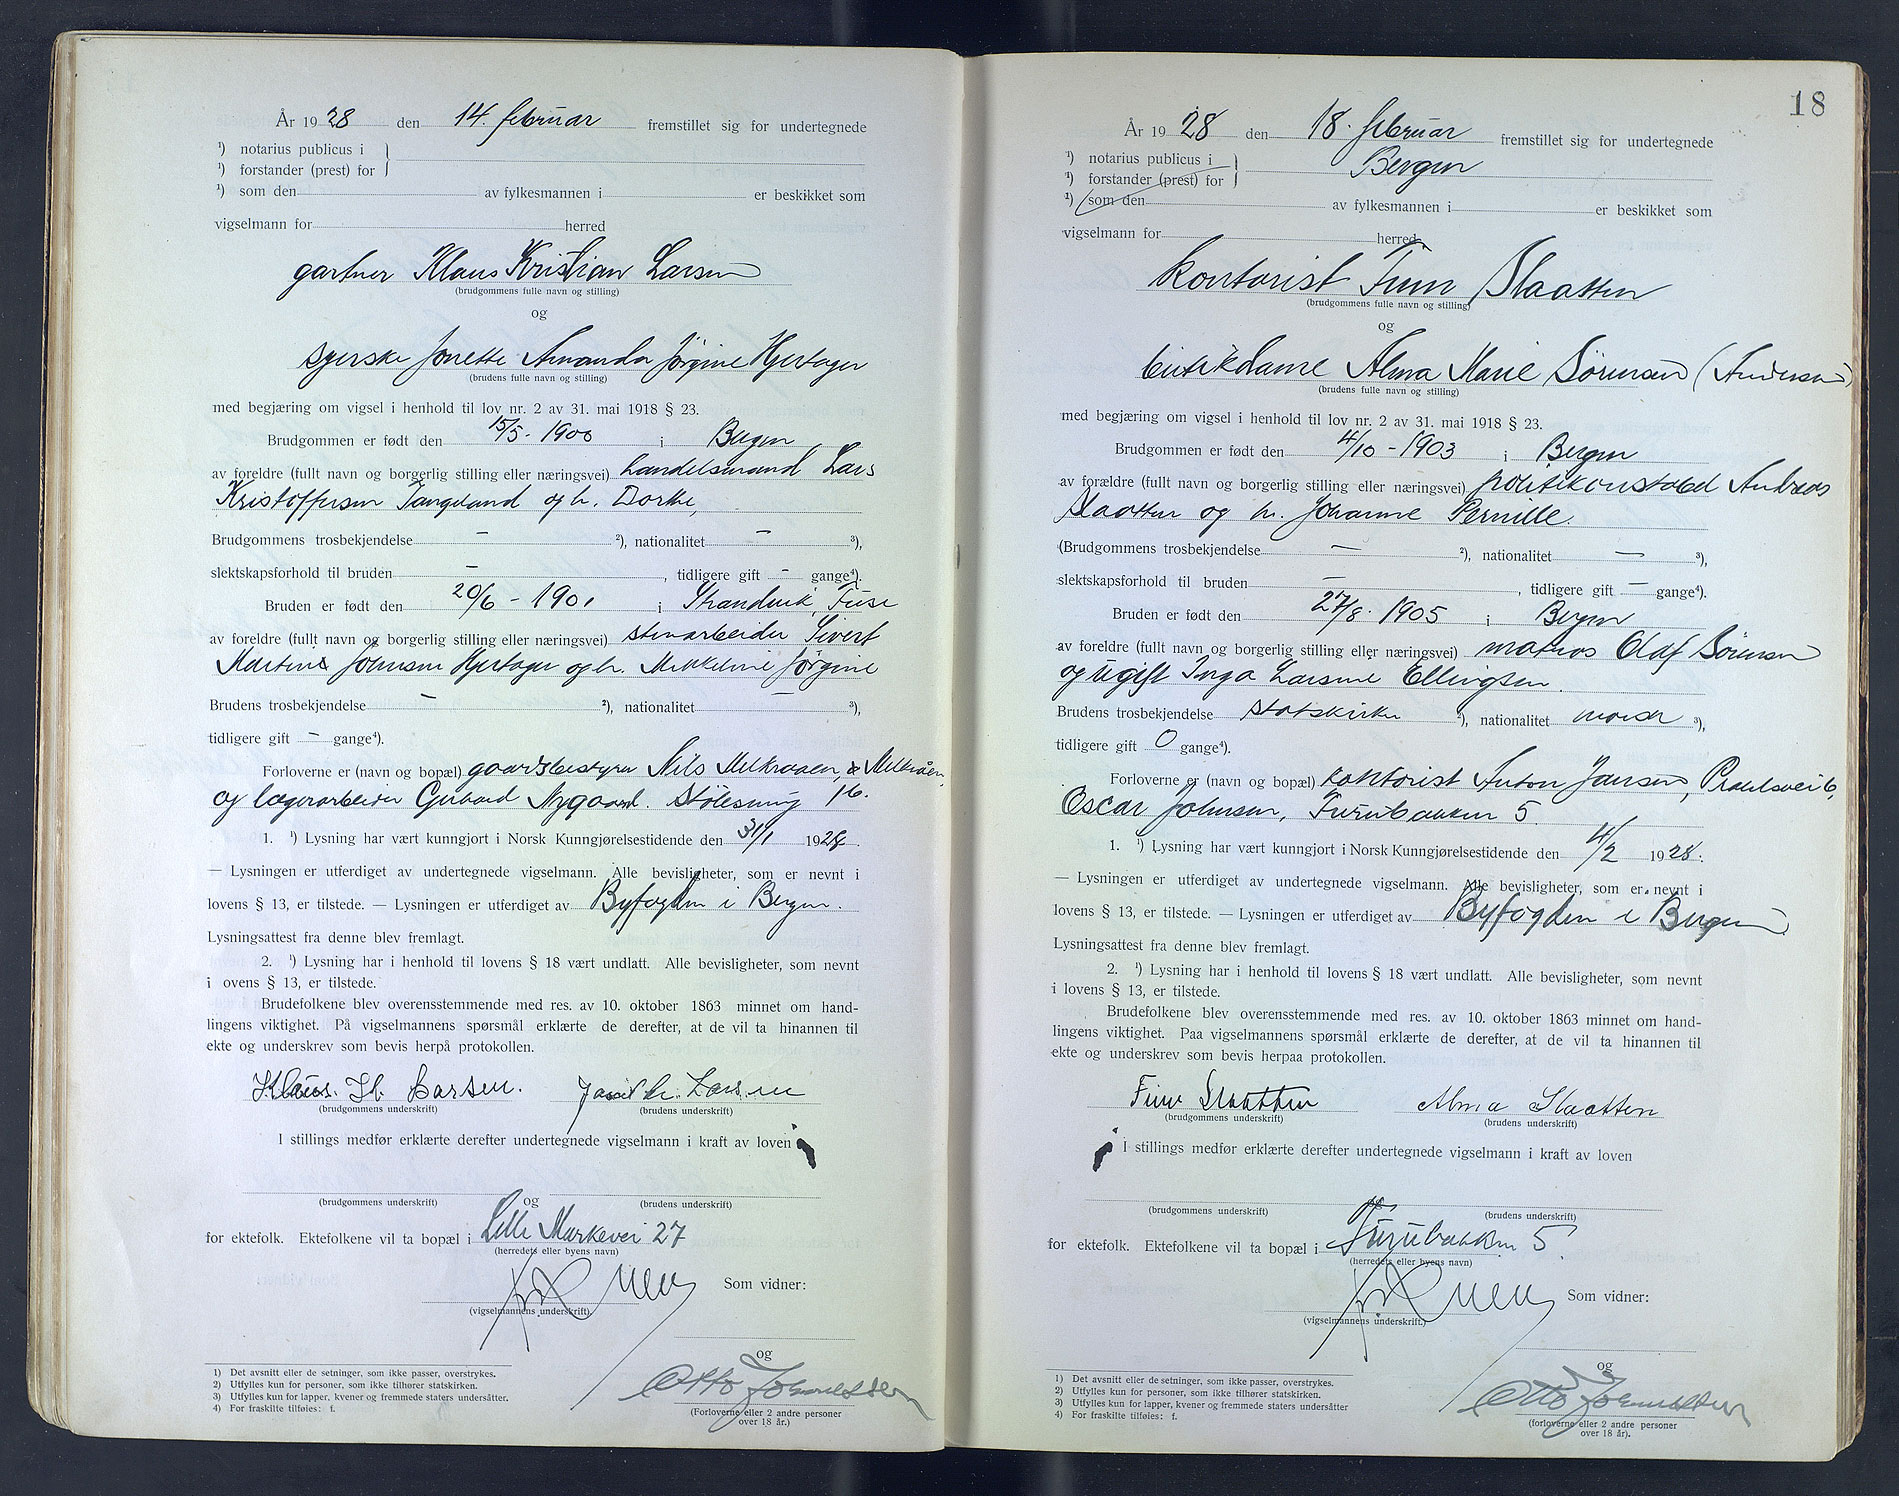 År 1928 den 14. februar fremstillet sig for undertegnede
¹) notarius publicus i
¹) forstander (prest) for
¹) som den av fylkesmannen i er beskikket som
vigselmann for herred
gartner Klaus Kristian Larsen
(brudgommens fulle navn og stilling)
og
syerske Jonette Amanda Jørgine Hjertager
(brudens fulle navn og stilling)
med begjæring om vigsel i henhold til lov nr. 2 av 31. mai 1918 § 23.
Brudgommen er født den 15/5 - 1900 i Bergen
av foreldre (fullt navn og borgerlig stilling eller næringsvei) handelsmand Lars
Kristoffersen Tangeland og h. Dorthe,
Brudgommens trosbekjendelse – ²), nationalitet – ³),
slektskapsforhold til bruden –, tidligere gift – gange⁴).
Bruden er født den 20/6 - 1901 i Strandvik, Fuse
av foreldre (fullt navn og borgerlig stilling eller næringsvei) stenarbeider Sivert
Martines Johnsen Hjertager og h. Mikkeline Jørgine
Brudens trosbekjendelse – ²), nationalitet – ³),
tidligere gift – gange⁴).
Forloverne er (navn og bopæl) gaardsbestyrer Nils Melkraaen, Melkråen,
og lagerarbeider Gerhard Nygaard. Stølesmug 16.
1. ¹) Lysning har vært kunngjort i Norsk Kunngjørelsestidende den 31/1 1928.
— Lysningen er utferdiget av undertegnede vigselmann. Alle bevisligheter, som er nevnt i
lovens § 13, er tilstede. — Lysningen er utferdiget av Byfogden i Bergen.
Lysningsattest fra denne blev fremlagt.
2. ¹) Lysning har i henhold til lovens § 18 vært undlatt. Alle bevisligheter, som nevnt
i ovens § 13, er tilstede.
Brudefolkene blev overensstemmende med res. av 10. oktober 1863 minnet om hand-
lingens viktighet. På vigselmannens spørsmål erklærte de derefter, at de vil ta hinannen til
ekte og underskrev som bevis herpå protokollen.
Klaus. K. Larsen. Larsen
(brudgommens underskrift) (brudens underskrift)
I stillings medfør erklærte derefter undertegnede vigselmann i kraft av loven
og
(brudgommens underskrift) (brudens underskrift)
for ektefolk. Ektefolkene vil ta bopæl i Lille Markevei 27
(herredets eller byens navn)
Som vidner:
(vigselmannens underskrift).
og
Otto Johannessen
(Forloverne eller 2 andre personer
over 18 år.)
1) Det avsnitt eller de setninger, som ikke passer, overstrykes.
2) Utfylles kun for personer, som ikke tilhører statskirken.
3) Utfylles kun for lapper, kvener og fremmede staters undersåtter.
4) For fraskilte tilføies: f.
18
År 1928 den 18. februar fremstillet sig for undertegnede
¹) notarius publicus i Bergen
¹) forstander (prest) for
¹) som den av fylkesmannen i er beskikket som
vigselmann for herred.
kontorist Finn Slaatten
(brudgommens fulle navn og stilling)
og
butikdame Alma Marie Sørensen (Andersen)
(brudens fulle navn og stilling)
med begjæring om vigsel i henhold til lov nr. 2 av 31. mai 1918 § 23.
Brudgommen er født den 4/10 - 1903 i Bergen
av forældre (fullt navn og borgerlig stilling eller næringsvei) politikonstabel Andreas
Slaatten og h. Johanne Pernille.
(Brudgommens trosbekjendelse – ²), nationalitet – ³),
slektskapsforhold til bruden –, tidligere gift – gange⁴).
Bruden er født den 27/8. 1905 i Bergen
av foreldre (fullt navn og borgerlig stilling eller næringsvei) matros Olaf Sørensen
og ugift Inga Larsine Ellingsen.
Brudens trosbekjendelse statskirke ²), nationalitet norsk ³),
tidligere gift 0 gange⁴).
Forloverne er (navn og bopæl) kontorist Anton Jansen,
Oscar Johnsen, Furubakken 5
1. ¹) Lysning har vært kunngjort i Norsk Kunngjørelsestidende den 4/2 1928.
— Lysningen er utferdiget av undertegnede vigselmann. Alle bevisligheter, som er nevnt i
lovens § 13, er tilstede. — Lysningen er utferdiget av Byfogden i Bergen
Lysningsattest fra denne blev fremlagt.
2. ¹) Lysning har i henhold til lovens § 18 vært undlatt. Alle bevisligheter, som nevnt
i lovens § 13, er tilstede.
Brudefolkene blev overensstemmende med res. av 10. oktober 1863 minnet om hand-
lingens viktighet. Paa vigselmannens spørsmål erklærte de derefter, at de vil ta hinannen til
ekte og underskrev som bevis herpaa protokollen.
Finn Slaatten Alma Slaatten
(brudgommens underskrift) (brudens underskrift)
I stillings medfør erklærte derefter undertegnede vigselmann i kraft av loven
og
(brudgommens underskrift) (brudens underskrift)
for ektefolk. Ektefolkene vil ta bopæl i Furubakken 5.
(herredets eller byens navn)
Som vidner:
(vigselmannens underskrift.)
og
Otto Johannessen
(forloverne eller 2 andre personer
over 18 år).
1) Det avsnitt eller de setninger, som ikke passer, overstrykes.
2) Utfylles kun for personer, som ikke tilhører statskirken.
3) Utfylles kun for lapper, kvener og fremmede staters undersåtter
4) For fraskilte tilføies: f.